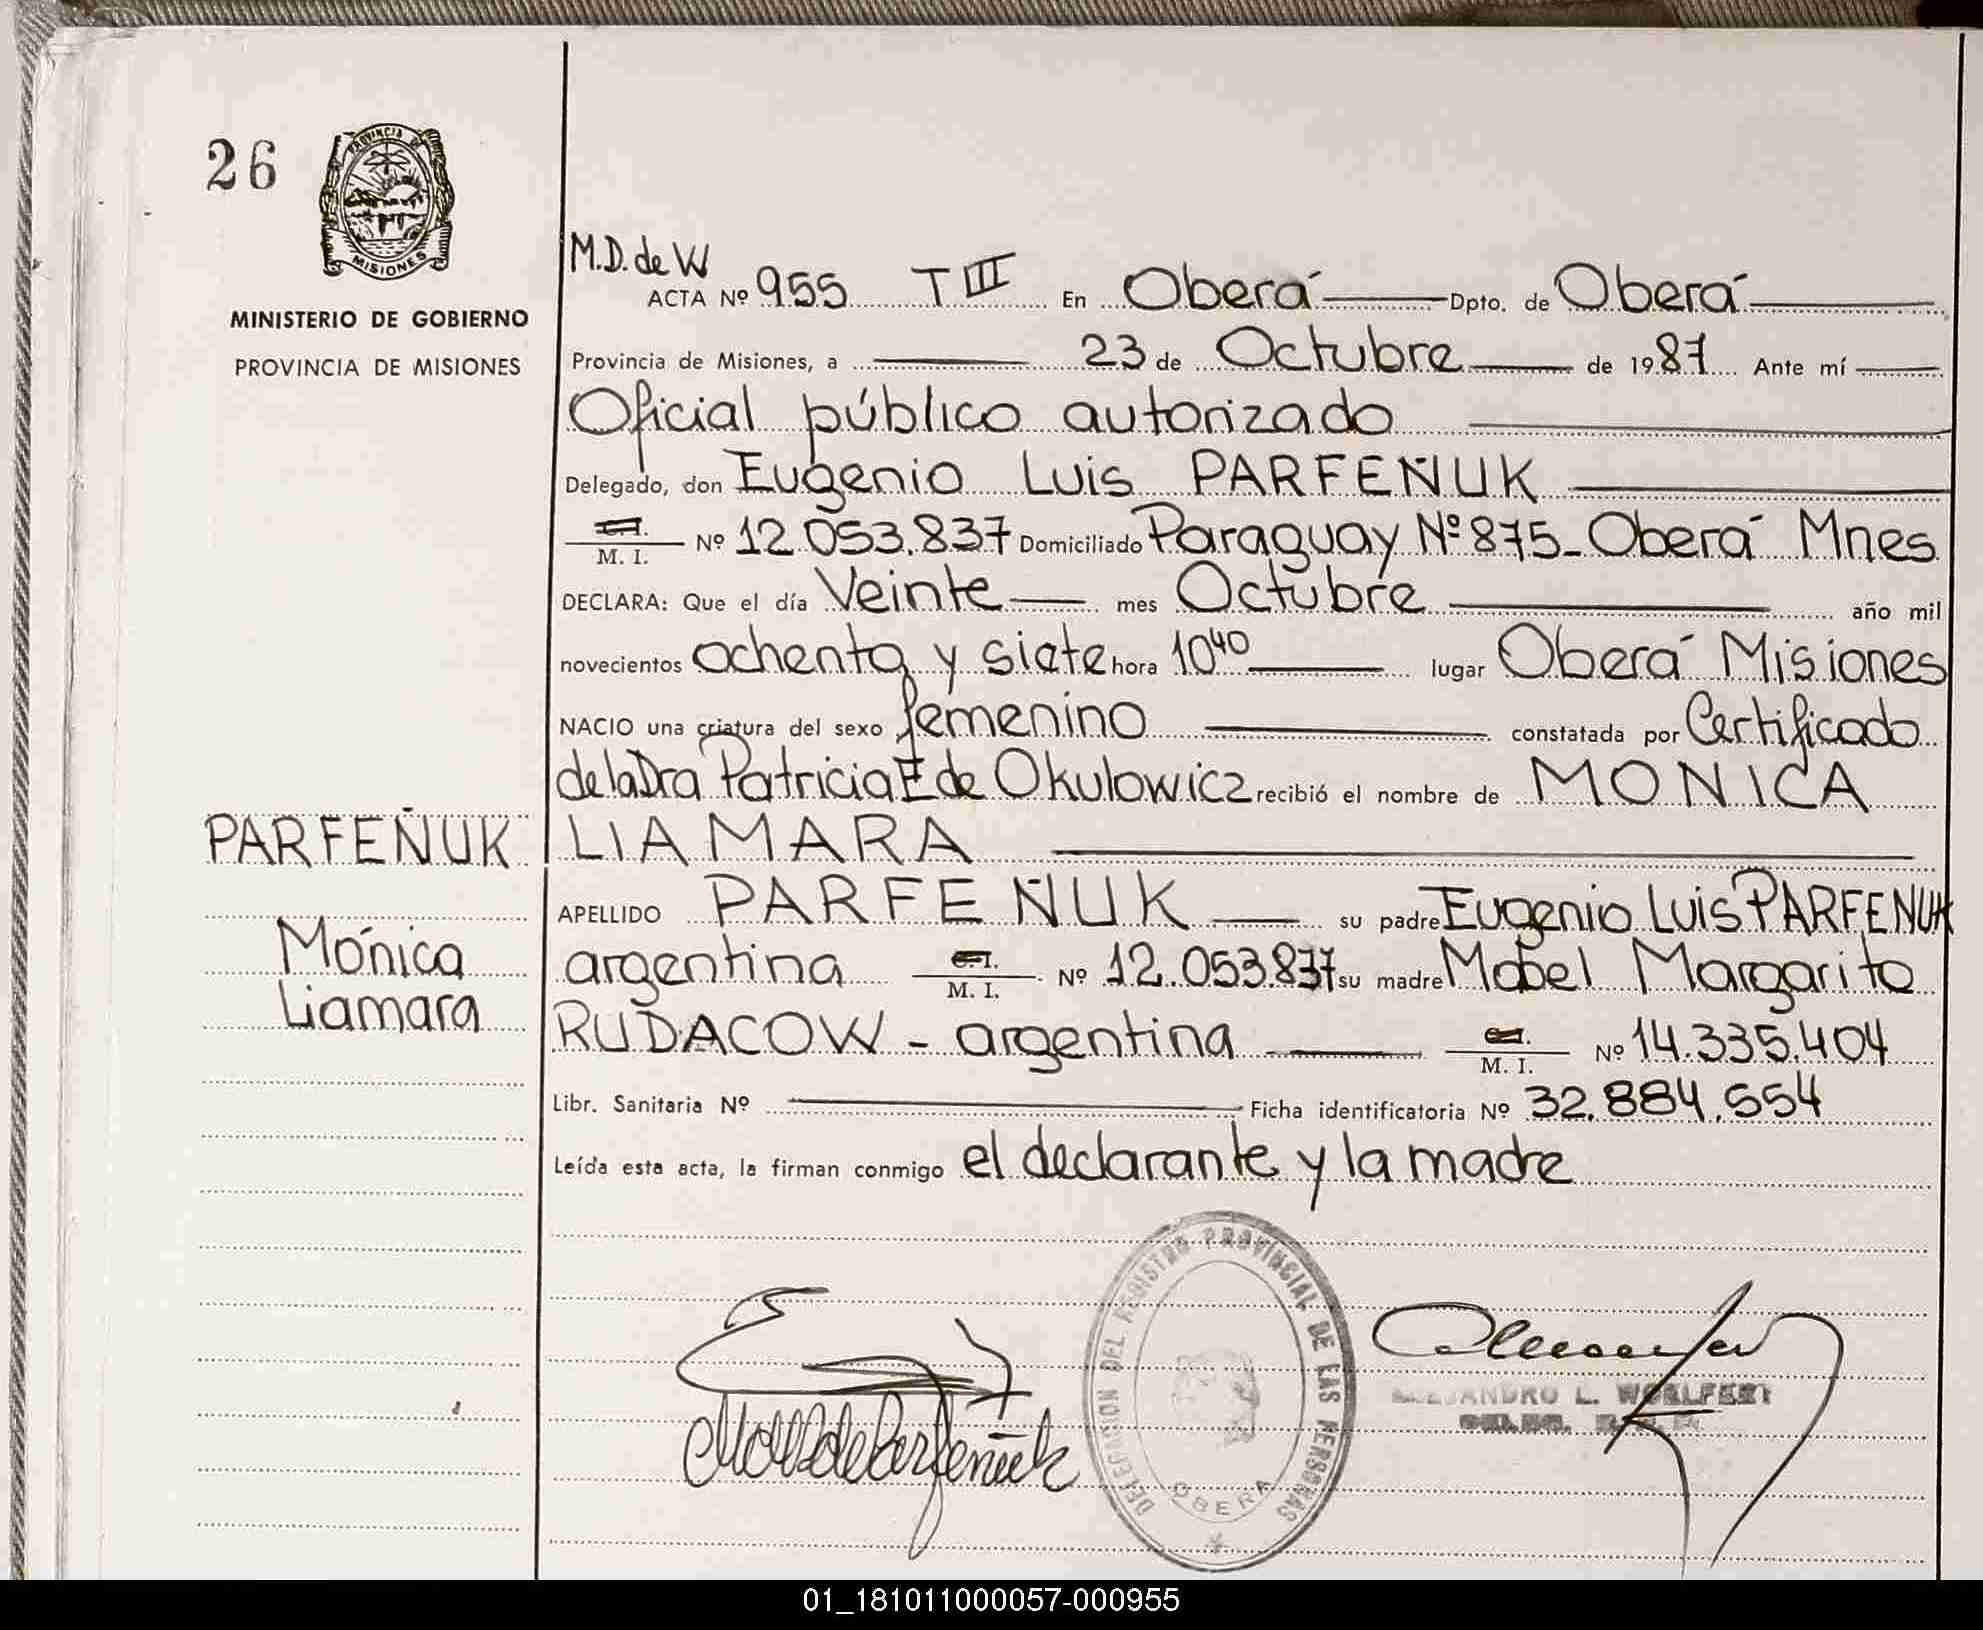 26
PROVINCIA DE
MISIONES
MINISTERIO DE GOBIERNO
PROVINCIA DE MISIONES
PARFEÑUK
Mónica
Liamara
M.D. de W
ACTA Nº 955 T III En Oberá Dpto. de Oberá
Provincia de Misiones, a 23 de Octubre de 1987 Ante mí
Oficial público autorizado
Delegado, don Eugenio Luis PARFEÑUK
M. I. Nº 12.053.837 Domiciliado Paraguay Nº 875- Oberá Mnes
DECLARA: Que el día Veinte mes Octubre año mil
novecientos ochenta y siete hora 10⁴⁰ lugar Oberá Misiones
NACIO una criatura del sexo femenino constatada por Certificado
de la Dra Patricia E de Okulowicz recibió el nombre de MONICA
LIAMARA
APELLIDO PARFEÑUK su padre Eugenio Luis PARFEÑUK
argentina M. I. Nº 12.053.837 su madre Mabel Margarita
RUDACOW - argentina M. I. Nº 14.335.404
Libr. Sanitaria Nº Ficha identificatoria Nº 32.884.554
Leída esta acta, la firman conmigo el declarante y la madre
DELEGACION DEL REGISTRO PROVINCIAL DE LAS PERSONAS
OBERA
de Parfeñuk
ALEJANDRO L. WOELFERT
01_181011000057-000955